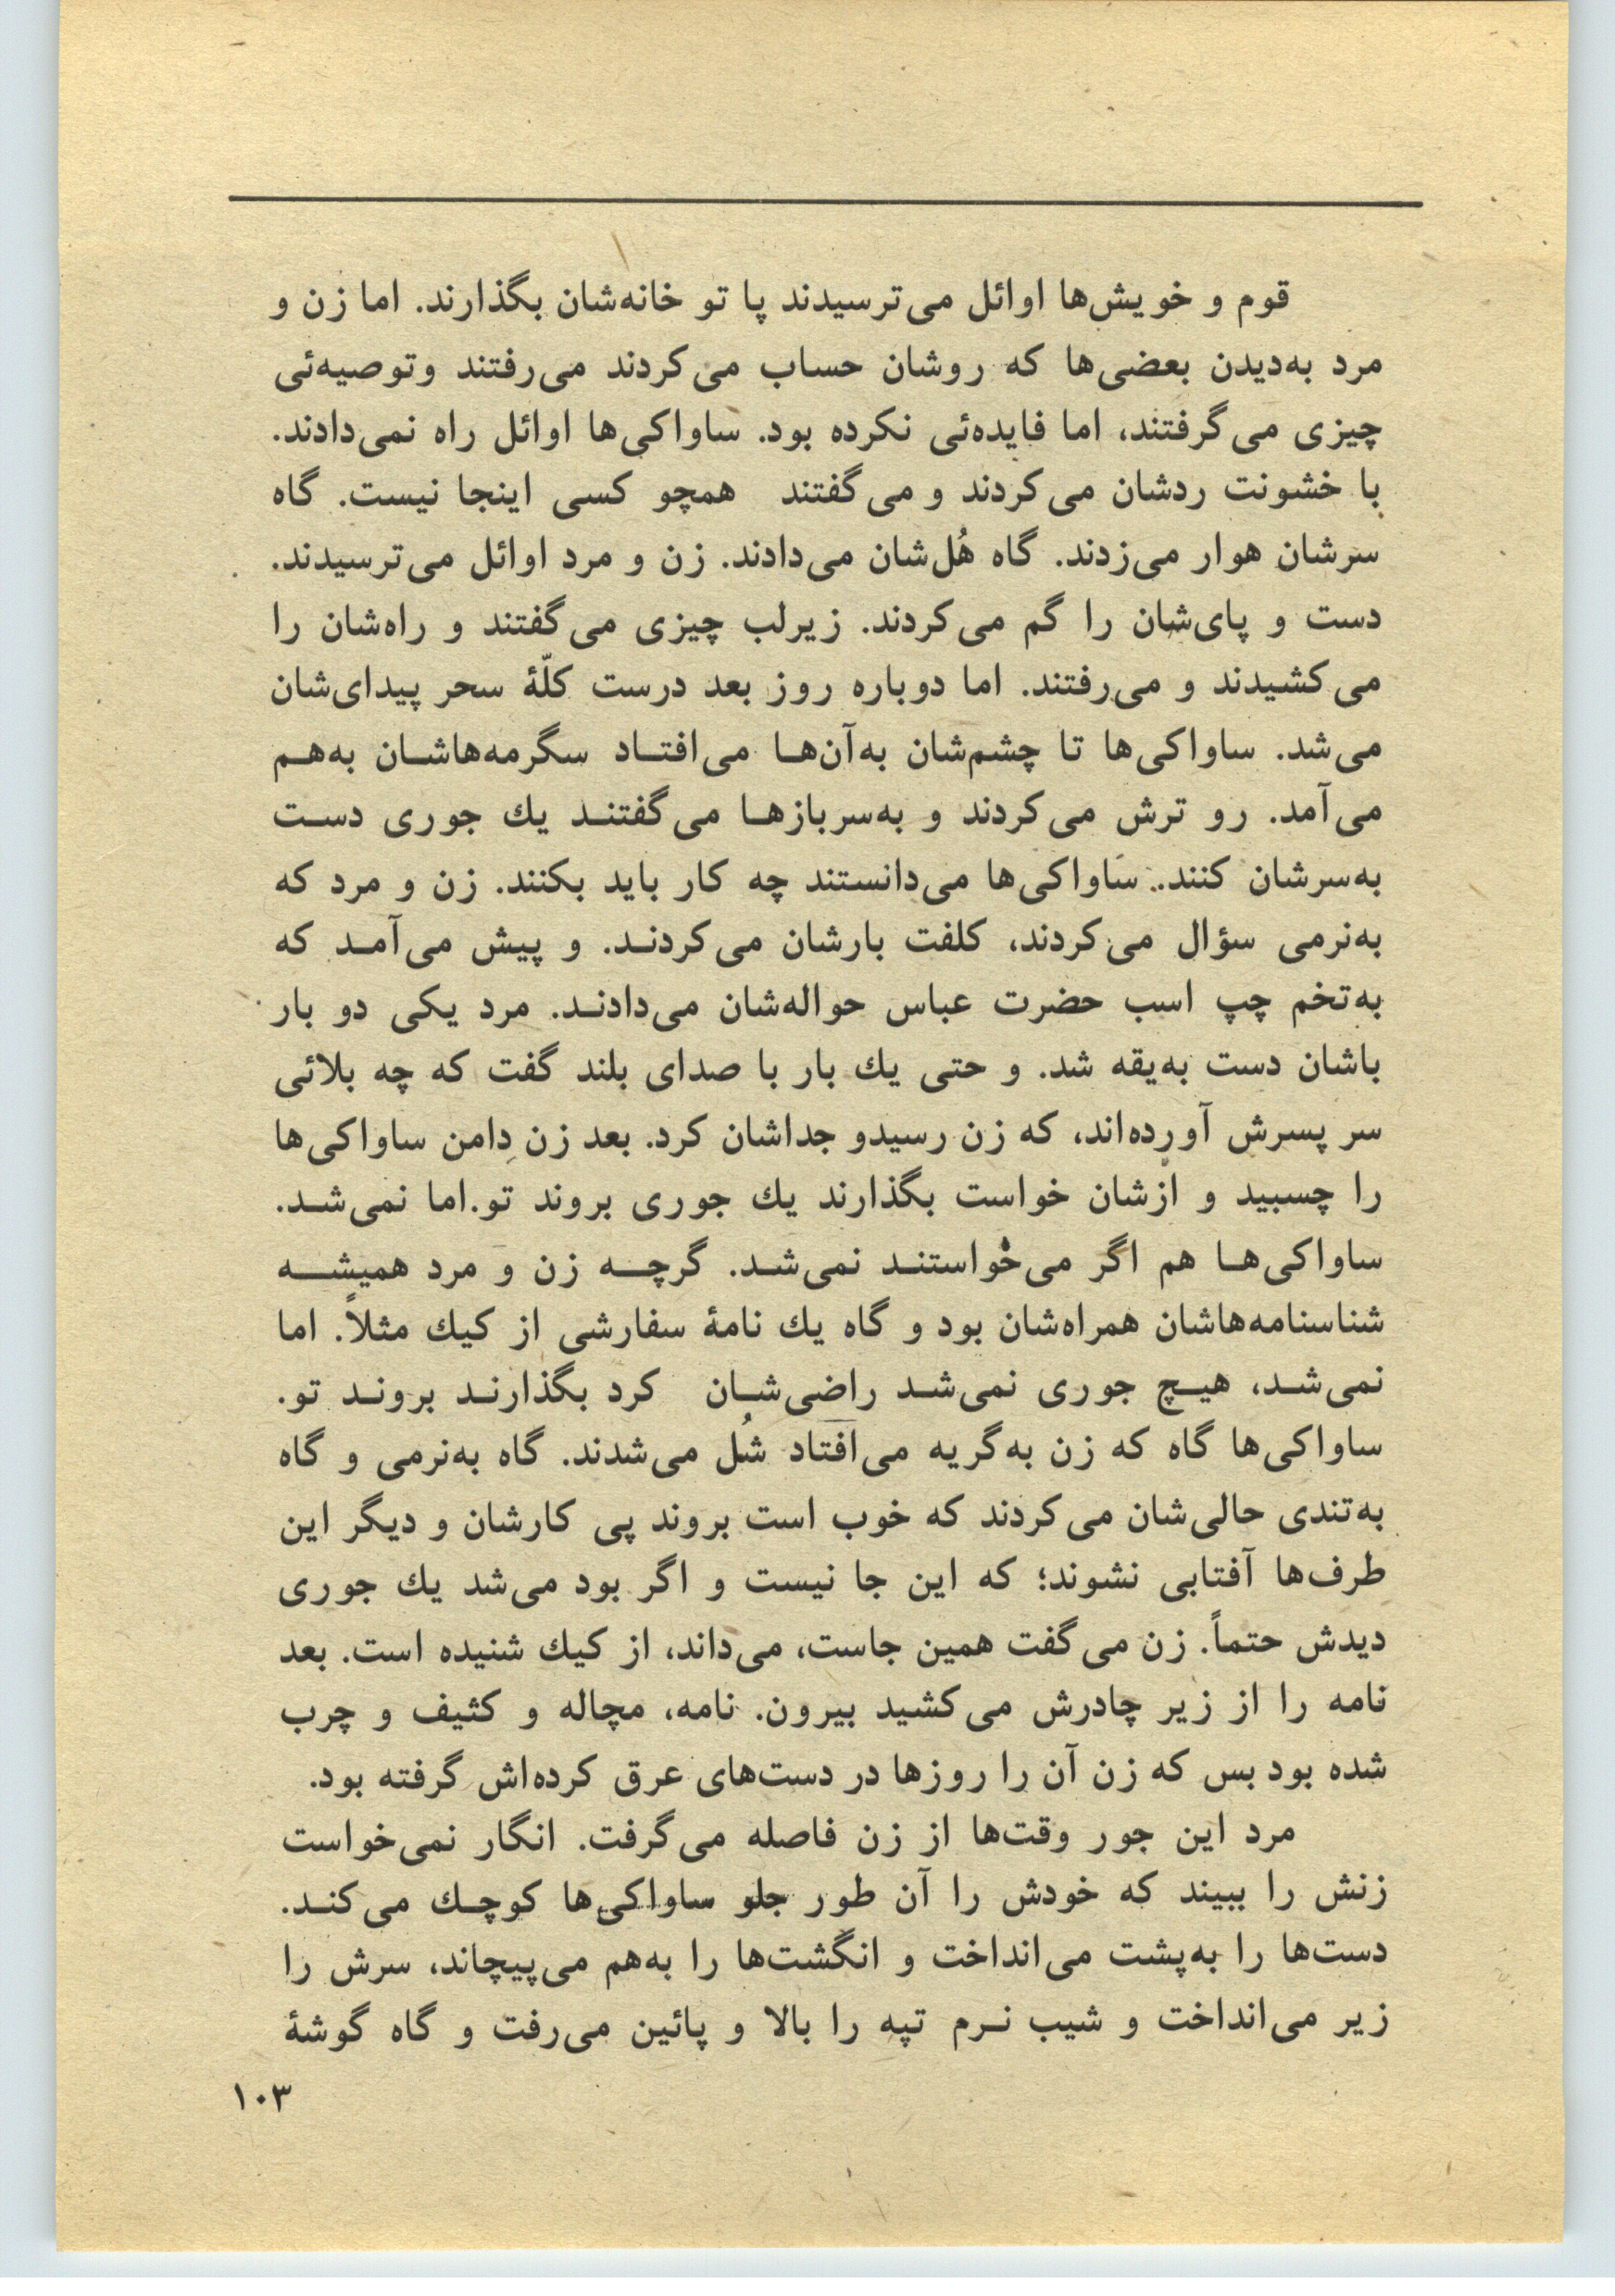 قوم و خویش‌ها اوائل می‌ترسیدند پا تو خانه‌شان بگذارند. اما زن و
مرد به‌دیدن بعضی‌ها که روشان حساب می‌کردند می‌رفتند وتوصیه‌ئی
چیزی می‌گرفتند، اما فایده‌ئی نکرده بود. ساواکی‌ها اوائل راه نمی‌دادند.
با خشونت ردشان می‌کردند و می‌گفتند همچو کسی اینجا نیست. گاه
سرشان هوار می‌زدند. گاه هُل‌شان می‌دادند. زن و مرد اوائل می‌ترسیدند.
دست و پای‌شان را گم می‌کردند. زیرلب چیزی می‌گفتند و راه‌شان را
می‌کشیدند و می‌رفتند. اما دوباره روز بعد درست کلّهٔ سحر پیدای‌شان
می‌شد. ساواکی‌ها تا چشم‌شان به‌آن‌ها می‌افتاد سگرمه‌هاشان به‌هم
می‌آمد. رو ترش می‌کردند و به‌سربازها می‌گفتند یك جوری دست
به‌سرشان کنند. ساواکی‌ها می‌دانستند چه کار باید بکنند. زن و مرد که
به‌نرمی سؤال می‌کردند، کلفت بارشان می‌کردند. و پیش می‌آمد که
به‌تخم چپ اسب حضرت عباس حواله‌شان می‌دادند. مرد یکی دو بار
باشان دست به‌یقه شد. و حتی یك بار با صدای بلند گفت که چه بلائی
سر پسرش آورده‌اند، که زن رسیدو جداشان کرد. بعد زن دامن ساواکی‌ها
را چسبید و ازشان خواست بگذارند یك جوری بروند تو.اما نمی‌شد.
ساواکی‌ها هم اگر می‌خواستند نمی‌شد. گرچه زن و مرد همیشه
شناسنامه‌هاشان همراه‌شان بود و گاه یك نامهٔ سفارشی از کیك مثلاً. اما
نمی‌شد، هیچ جوری نمی‌شد راضی‌شان کرد بگذارند بروند تو.
ساواکی‌ها گاه که زن به‌گریه می‌افتاد شُل می‌شدند. گاه به‌نرمی و گاه
به‌تندی حالی‌شان می‌کردند که خوب است بروند پی کارشان و دیگر این
طرف‌ها آفتابی نشوند؛ که این جا نیست و اگر بود می‌شد یك جوری
دیدش حتماً. زن می‌گفت همین جاست، می‌داند، از کیك شنیده است. بعد
نامه را از زیر چادرش می‌کشید بیرون. نامه، مچاله و کثیف و چرب
شده بود بس که زن آن را روزها در دست‌های عرق کرده‌اش گرفته بود.
مرد این جور وقت‌ها از زن فاصله می‌گرفت. انگار نمی‌خواست
زنش را ببیند که خودش را آن طور جلو ساواکی‌ها کوچك می‌کند.
دست‌ها را به‌پشت می‌انداخت و انگشت‌ها را به‌هم می‌پیچاند، سرش را
زیر می‌انداخت و شیب نرم تپه را بالا و پائین می‌رفت و گاه گوشهٔ
۱۰۳